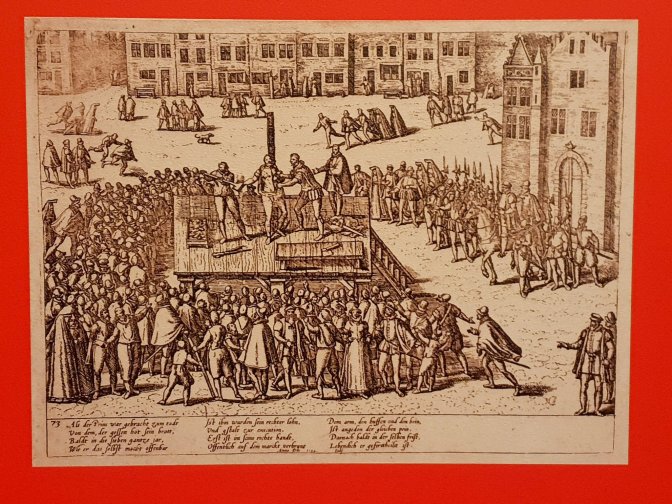 73 Als der Prins war gebracht zum todt
Von dem, der gessen hat sein brott,
Baldt in die sieben gantze jar,
Wie er dis selbst macht offenbar
Ist ihm worden sein rechter lohn,
Und gstalt zur execution.
Erst ist im seine rechte handt,
Offentlich auf dem marckt verbrant
Dem arm, den huffen und den bein,
Ist angeden der gleichen pein,
Darnach baldt in der selben frist,
Lebendich er gefiertheilt ist.